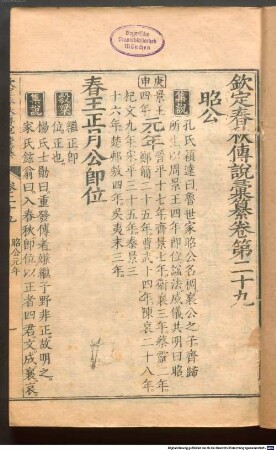 Bayerische
Staatsbibliothek
München
欽定春秋傳說彙纂卷第二十九
昭公
集說
孔氏穎達曰魯世家昭公名稠襄公之子齊歸
所生以周景王四年即位諡法威儀共明曰昭
庚申
景王四年
元年
晉平十七年齊景七年衛襄三年蔡靈二年
鄭簡二十五年曹武十四年陳哀二十八年
杞文九年宋平三十五年秦景三
十六年楚郟敖四年吳夷末三年
春王正月公即位
穀梁
繼正即
位正也
集說
楊氏士勛曰重發傳者嫌繼子野非正故明之
家氏鉉翁曰入春秋即位以正者四君文成襄哀
昭公元年
一